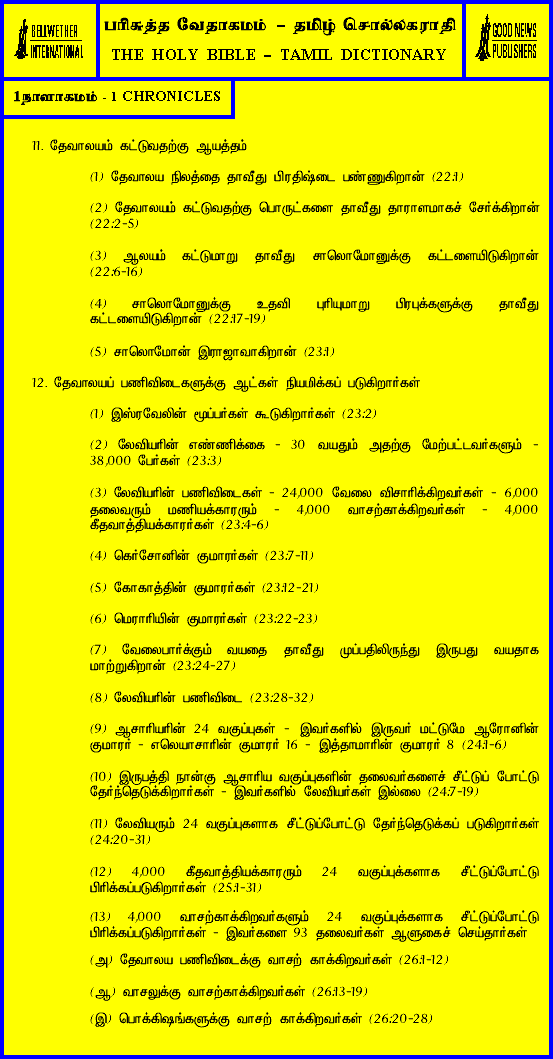 BELLWETHER
INTERNATIONAL
பரிசுத்த வேதாகமம் – தமிழ் சொல்லகராதி
THE HOLY BIBLE – TAMIL DICTIONARY
GOOD NEWS
PUBLISHERS
1நாளாகமம் - 1 CHRONICLES
11. தேவாலயம் கட்டுவதற்கு ஆயத்தம்
(1) தேவாலய நிலத்தை தாவீது பிரதிஷ்டை பண்ணுகிறான் (22:1)
(2) தேவாலயம் கட்டுவதற்கு பொருட்களை தாவீது தாராளமாகச் சேர்க்கிறான்
(22:2-5)
(3) ஆலயம் கட்டுமாறு தாவீது சாலொமோனுக்கு கட்டளையிடுகிறான்
(22:6-16)
(4) சாலொமோனுக்கு உதவி புரியுமாறு பிரபுக்களுக்கு தாவீது
கட்டளையிடுகிறான் (22:17-19)
(5) சாலொமோன் இராஜாவாகிறான் (23:1)
12. தேவாலயப் பணிவிடைகளுக்கு ஆட்கள் நியமிக்கப் படுகிறார்கள்
(1) இஸ்ரவேலின் மூப்பர்கள் கூடுகிறார்கள் (23:2)
(2) லேவியரின் எண்ணிக்கை - 30 வயதும் அதற்கு மேற்பட்டவர்களும் -
38,000 பேர்கள் (23:3)
(3) லேவியரின் பணிவிடைகள் - 24,000 வேலை விசாரிக்கிறவர்கள் - 6,000
தலைவரும் மணியக்காரரும் - 4,000 வாசற்காக்கிறவர்கள் - 4,000
கீதவாத்தியக்காரர்கள் (23:4-6)
(4) கெர்சோனின் குமாரர்கள் (23:7-11)
(5) கோகாத்தின் குமாரர்கள் (23:12-21)
(6) மெராரியின் குமாரர்கள் (23:22-23)
(7) வேலைபார்க்கும் வயதை தாவீது முப்பதிலிருந்து இருபது வயதாக
மாற்றுகிறான் (23:24-27)
(8) லேவியரின் பணிவிடை (23:28-32)
(9) ஆசாரியரின் 24 வகுப்புகள் - இவர்களில் இருவர் மட்டுமே ஆரோனின்
குமாரர் - எலெயாசாரின் குமாரர் 16 - இத்தாமாரின் குமாரர் 8 (24:1-6)
(10) இருபத்தி நான்கு ஆசாரிய வகுப்புகளின் தலைவர்களைச் சீட்டுப் போட்டு
தேர்ந்தெடுக்கிறார்கள் - இவர்களில் லேவியர்கள் இல்லை (24:7-19)
(11) லேவியரும் 24 வகுப்புகளாக சீட்டுப்போட்டு தேர்ந்தெடுக்கப் படுகிறார்கள்
(24:20-31)
(12) 4,000 கீதவாத்தியக்காரரும் 24 வகுப்புக்களாக சீட்டுப்போட்டு
பிரிக்கப்படுகிறார்கள் (25:1-31)
(13) 4,000 வாசற்காக்கிறவர்களும் 24 வகுப்புக்களாக சீட்டுப்போட்டு
பிரிக்கப்படுகிறார்கள் - இவர்களை 93 தலைவர்கள் ஆளுகைச் செய்தார்கள்
(அ) தேவாலய பணிவிடைக்கு வாசற் காக்கிறவர்கள் (26:1-12)
(ஆ) வாசலுக்கு வாசற்காக்கிறவர்கள் (26:13-19)
(இ) பொக்கிஷங்களுக்கு வாசற் காக்கிறவர்கள் (26:20-28)